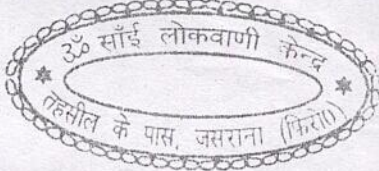 ॐ साँई लोकवाणी केन्द्र
तहसील के पास, जसराना (फिरो0)